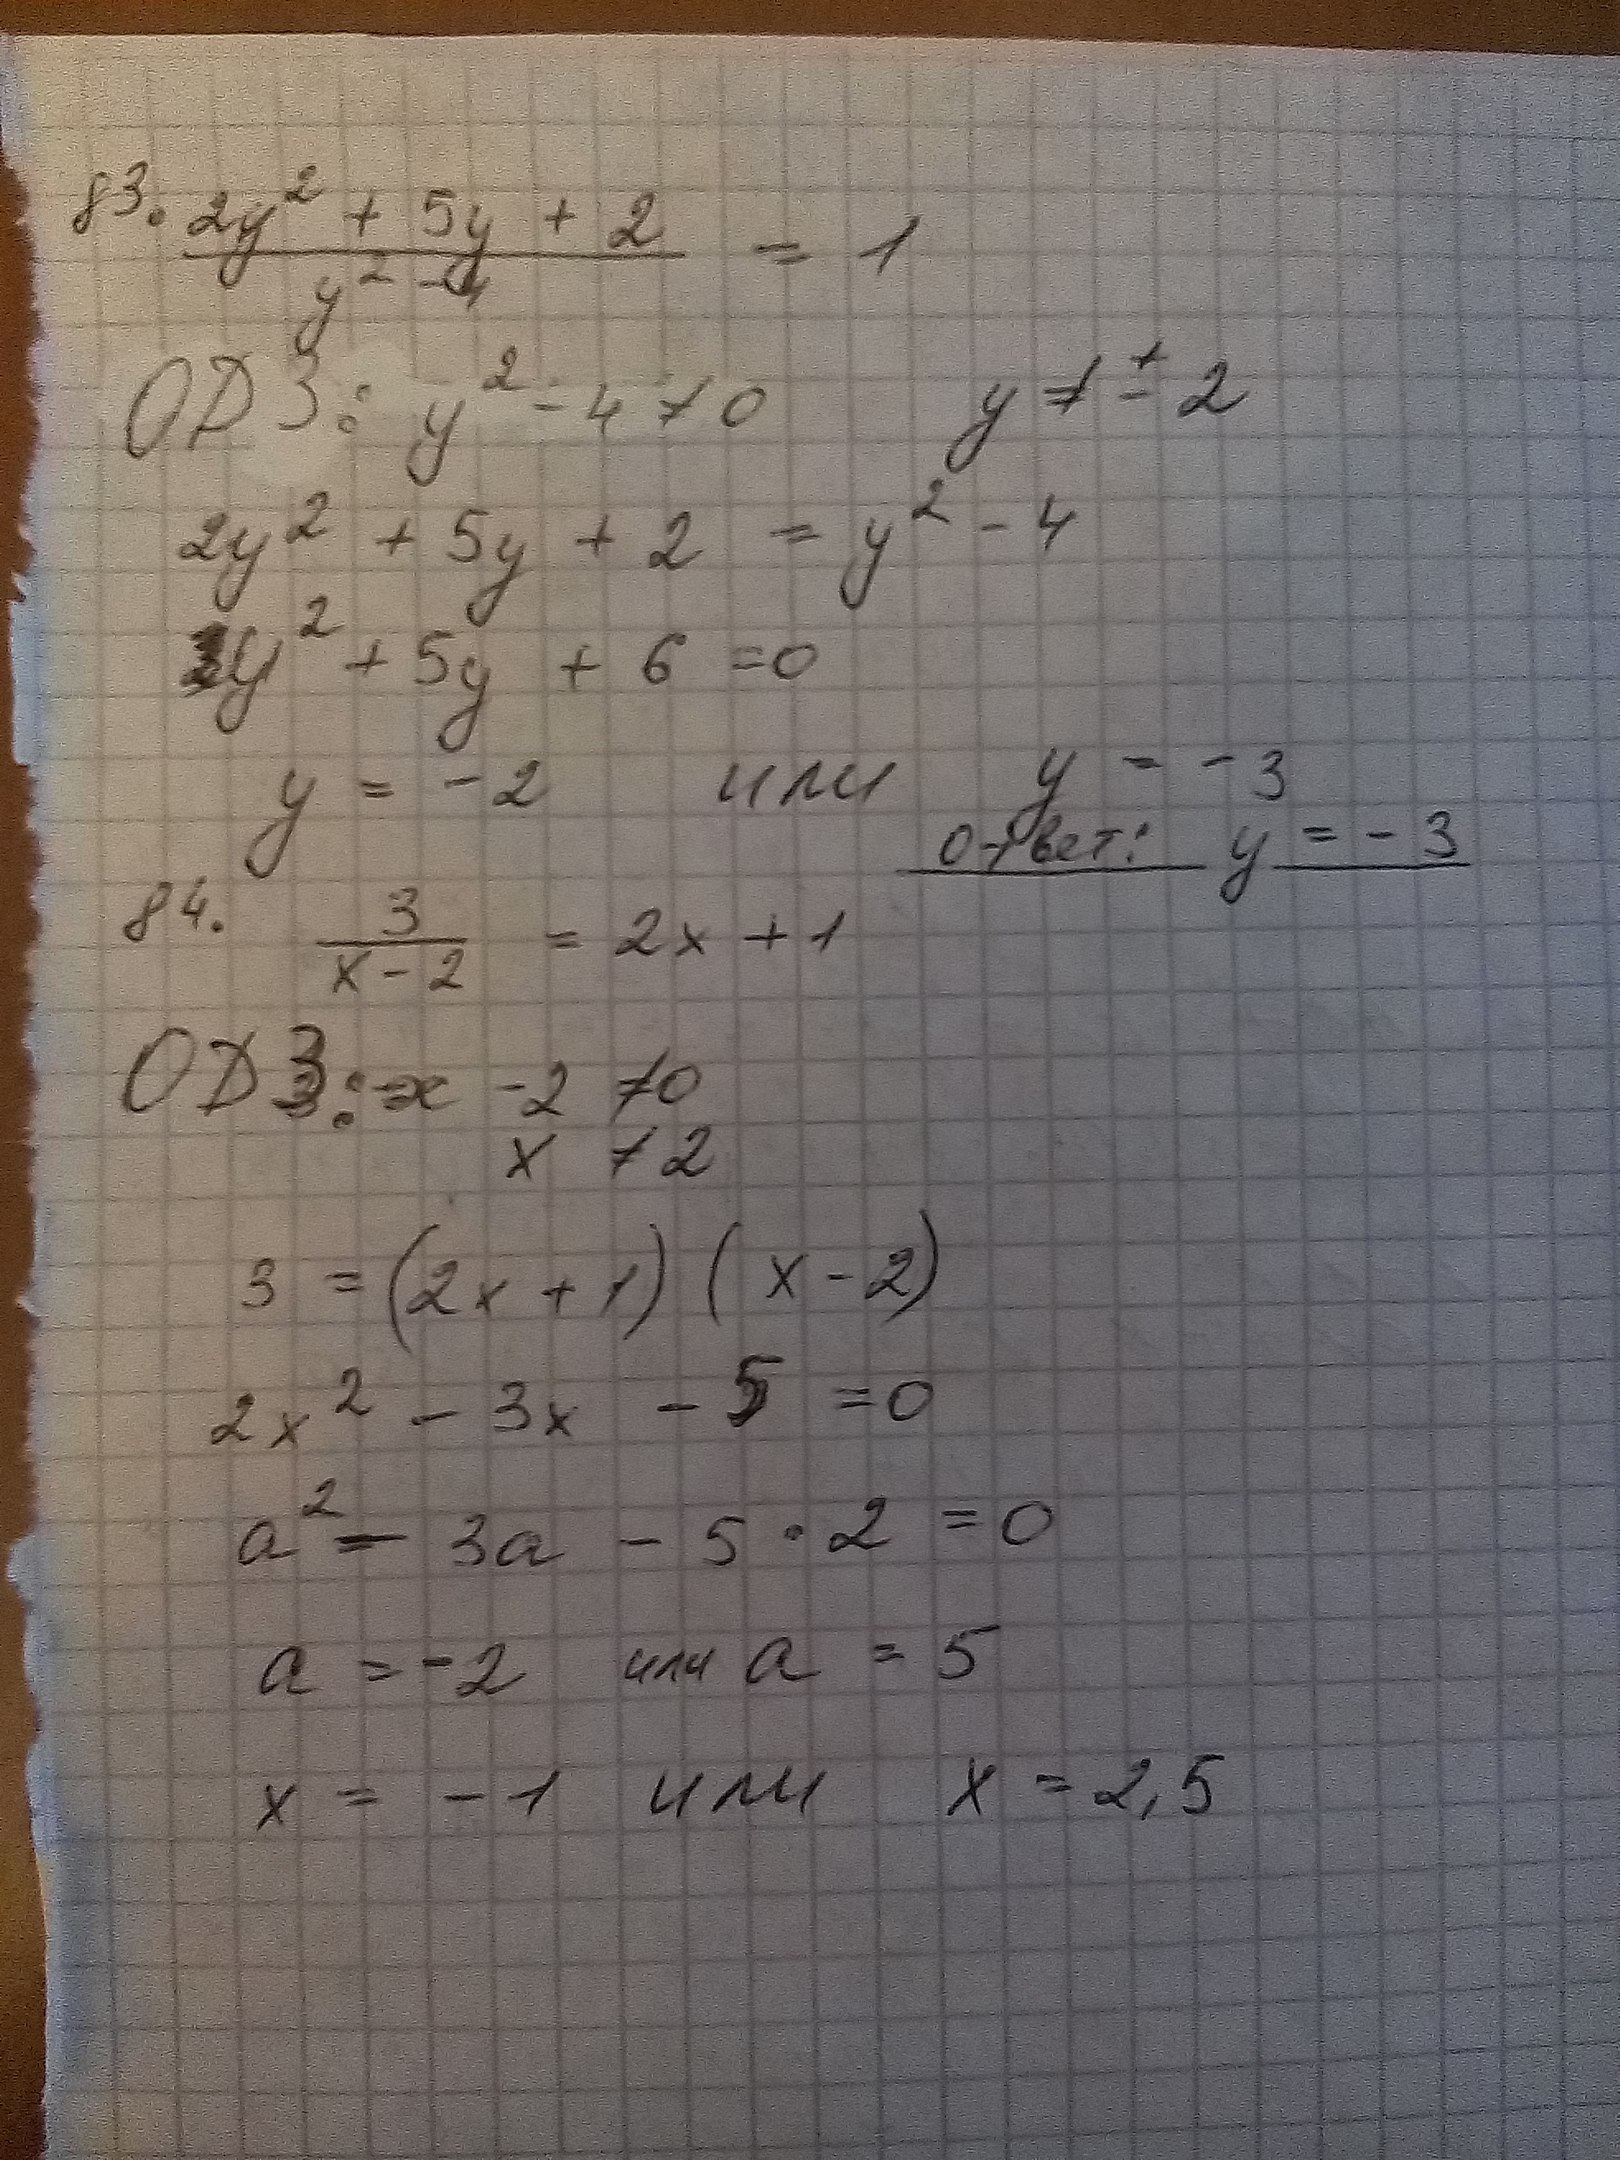 83. (2y² + 5y + 2)/(y² - 4) = 1
ОДЗ: y² - 4 ≠ 0 y ≠ ± 2
2y² + 5y + 2 = y² - 4
y² + 5y + 6 = 0
y = -2 или y = -3
ответ: y = -3
84. 3/(x - 2) = 2x + 1
ОДЗ: x - 2 ≠ 0
x ≠ 2
3 = (2x + 1) (x - 2)
2x² - 3x - 5 = 0
a² - 3a - 5 · 2 = 0
a = -2 или a = 5
x = -1 или x = 2,5